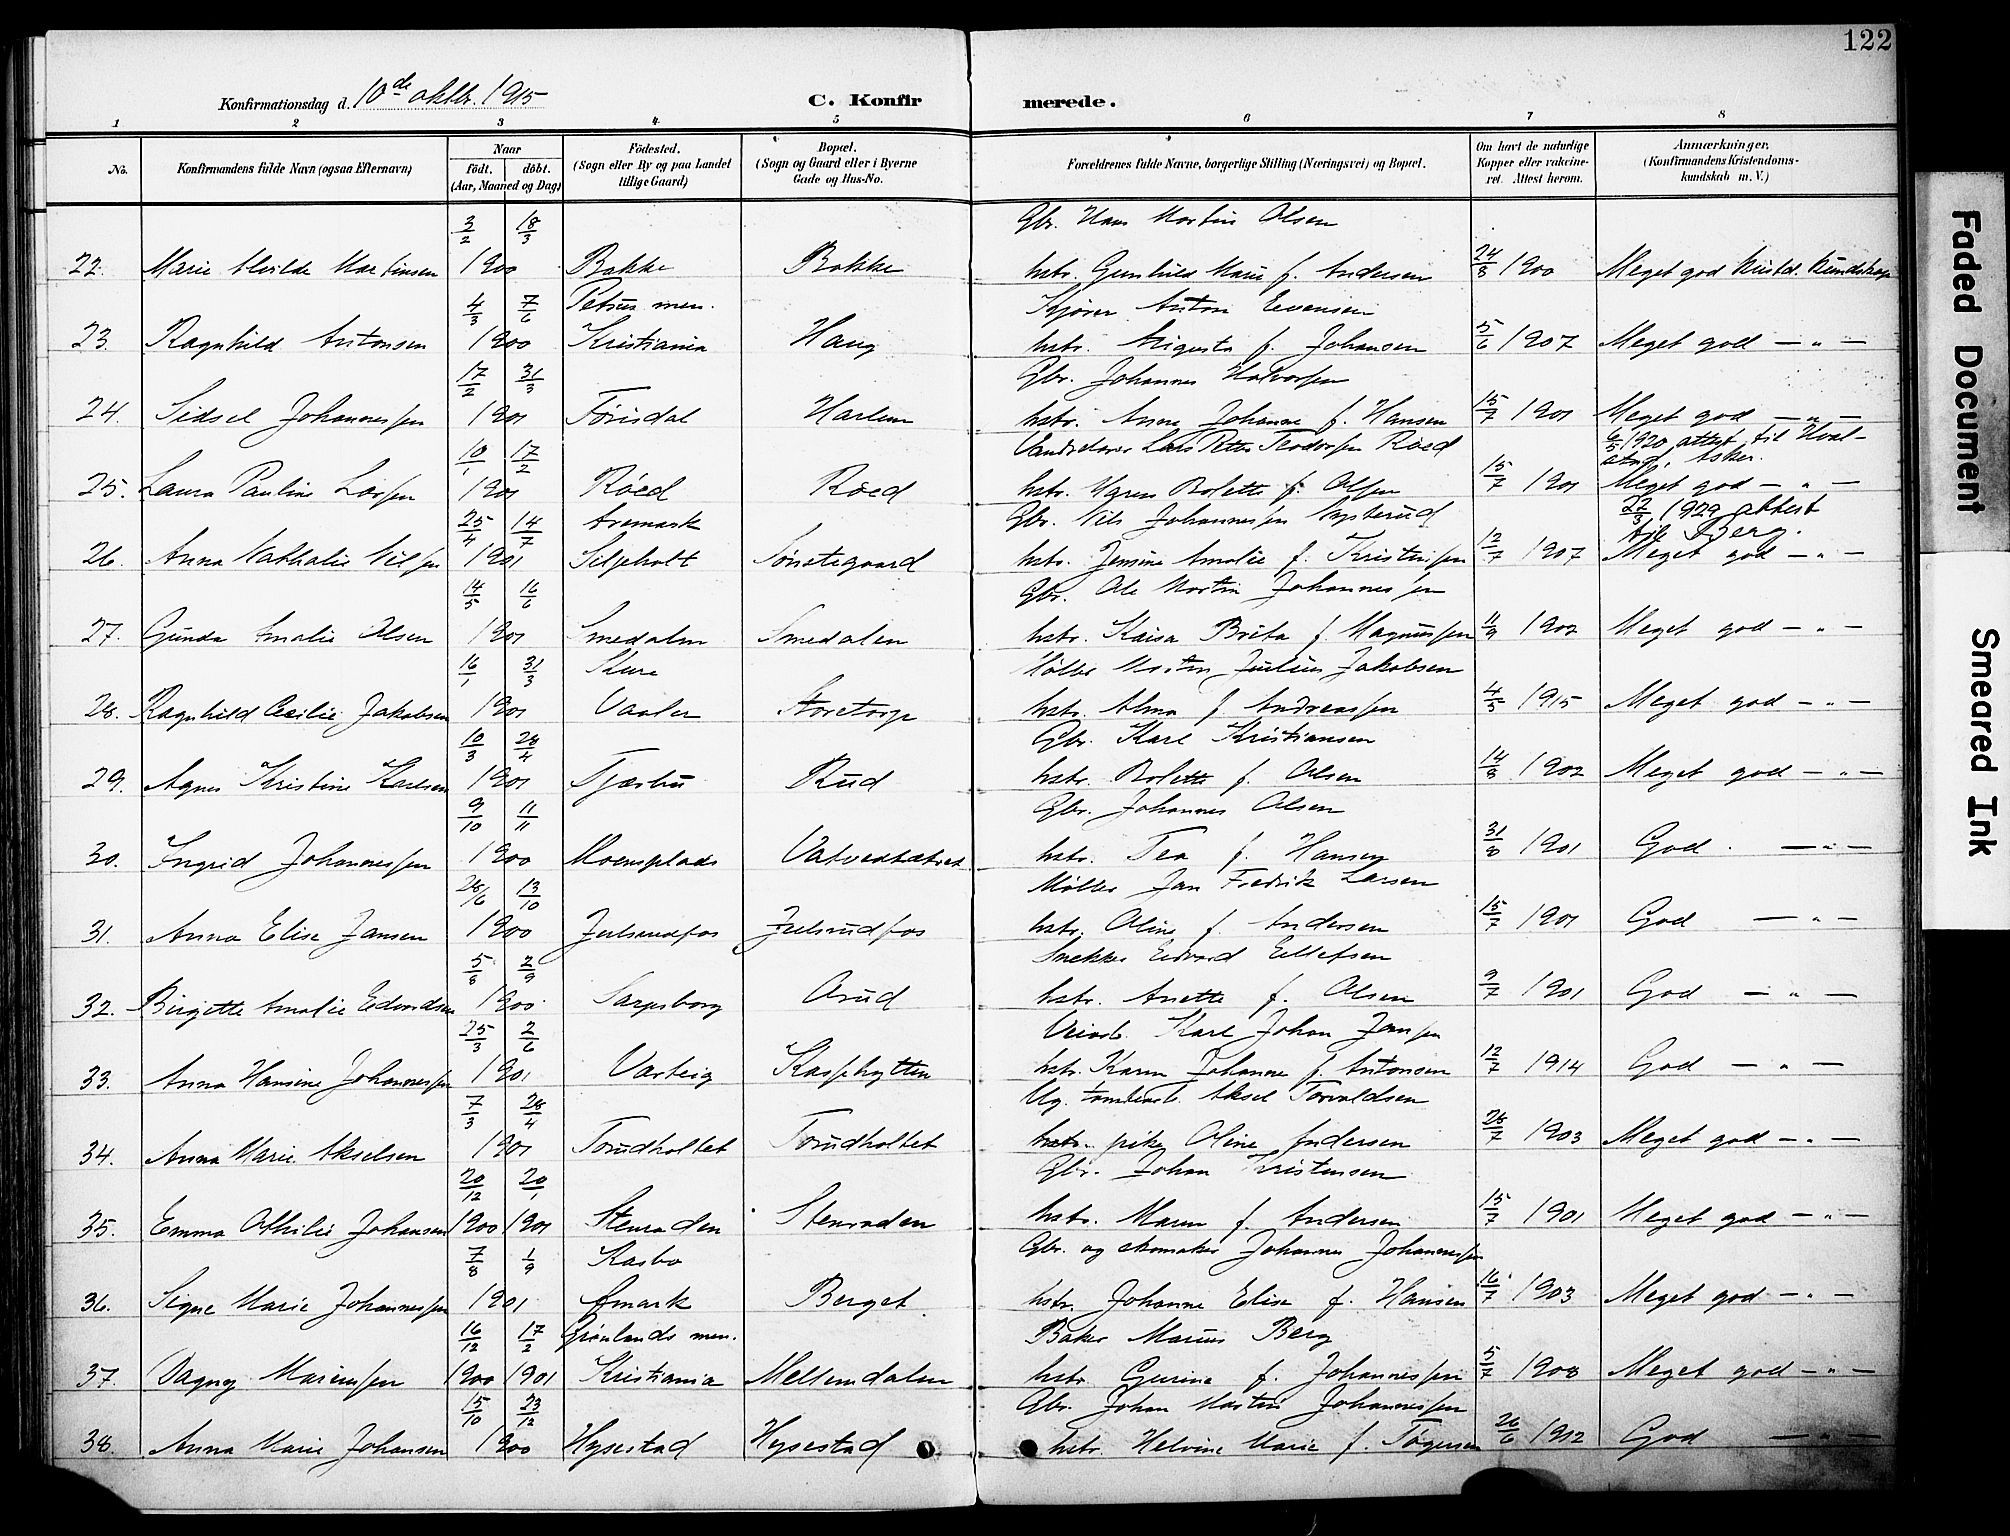 122
Konfirmationsdag d. 10de oktbr. 1915
C. Konfirmerede.
1 2 3 4 5 6 7 8
No. Konfirmandens fulde Navn (ogsaa Efternavn) Naar født. døbt. (Aar, Maaned og Dag) Födested. (Sogn eller By og paa Landet tillige Gaard) Bopæl. (Sogn og Gaard eller i Byerne Gade og Hus-No. Forældrenes fulde Navne, borgerlige Stilling (Næringsvei) og Bopæl. Om havt de naturlige Kopper eller vakcineret. Attest herom. Anmærkninger. (Konfirmandens Kristendomskundskab m. V.)
3/2 18/3 Gbr. Hans Martin Olsen
22. Marie Alvilde Martinsen 1900 Bakke Bakke hstr. Gunhild Marie f. Andersen 24/8 1900 Meget god kristd. kundskap
4/3 7/6 Petrus men. Kjører Anton Evensen
23. Ragnhild Antonsen 1900 Kristiania Haug hstr. Augusta f. Johansen 5/6 1907 Meget god — „ —
17/2 31/3 Gbr. Johannes Halvorsen
24. Sidsel Johannessen 1901 Tørisdal Harlem hstr. Anna Johanne f. Hansen 15/7 1901 Meget god — „ —
10/1 17/2 Lars Petter Teodorsen Røed 6/5 1920 attest til Hvalstad, Asker.
25. Laura Pauline Larsen 1901 Røed Røed hstr. Maren Bolette f. Olsen 15/7 1901 Meget god — „ —
25/4 14/7 Aremark Gbr. Nils Johannessen Nysterud 22/3 1929 attest til Berg.
26. Anna Nathalie Nilsen 1901 Siljeholt Sønstegaard hstr. Jensine Amalie f. Kristensen 12/7 1907 Meget god — „ —
14/5 16/6 Gbr. Ole Martin Johannessen
27. Gunda Amalie Olsen 1901 Smedalen Smedalen hstr. Kaisa Brita f. Magnussen 11/9 1902 Meget god — „ —
16/1 31/3 Kure Møller Martin Julius Jakobsen
28. Ragnhild Cecilie Jakobsen 1901 Vaaler Støretorp hstr. Alma f. Andreassen 4/5 1915 Meget god — „ —
10/3 28/4 Gbr. Karl Kristiansen
29. Agnes Kristine Karlsen 1901 Tjærbu Rud hstr. Bolette f. Olsen 14/8 1902 Meget god — „ —
9/10 11/11 Gbr. Johannes Olsen
30. Ingrid Johannessen 1900 Moensplads hstr. Tea f. Hansen 31/8 1901 God — „ —
28/6 13/10 Møller Jan Fredrik Larsen
31. Anna Elise Jansen 1900 Julsrudfos Julsrudfos hstr. Oline f. Andersen 15/7 1901 God — „ —
5/8 2/9 Snekker Edvard Ellefsen
32. Birgitte Amalie Edvardsen 1900 Sarpsborg Orud hstr. Anette f. Olsen 9/7 1901 God — „ —
25/3 2/6 Karl Johan Jansen
33. Anna Hansine Johannessen 1901 Varteig Kasphytten hstr. Karen Johanne f. Antonsen 12/7 1914 God — „ —
7/3 28/4 Ug. Aksel Torvaldsen
34. Anna Marie Akselsen 1901 Torudholtet Torudholtet pike Oline Andersen 28/7 1903 Meget god — „ —
20/12 20/1 Gbr. Johan Kristensen
35. Emma Othilie Johansen 1900 1901 Stenraden Stenraden hstr. Maren f. Andersen 15/7 1901 Meget god — „ —
7/8 1/9 Kasbo Gbr. og skomaker Johannes Johannessen
36. Signe Marie Johannessen 1901 Ømark Berget hstr. Johanne Elise f. Hansen 16/7 1903 Meget god — „ —
16/12 17/2 Grønlands men. Baker Marius Berg
37. Dagny Mariussen 1900 1901 Kristiania Mellemdalen hstr. Gurine f. Johannessen 5/7 1908 Meget god — „ —
15/10 23/12 Gbr. Johan Martin Johannessen
38. Anna Marie Johansen 1900 Hysestad Hysestad hstr. Helvine Marie f. Tøgersen 26/6 1912 God — „ —
Faded Document
Smeared Ink